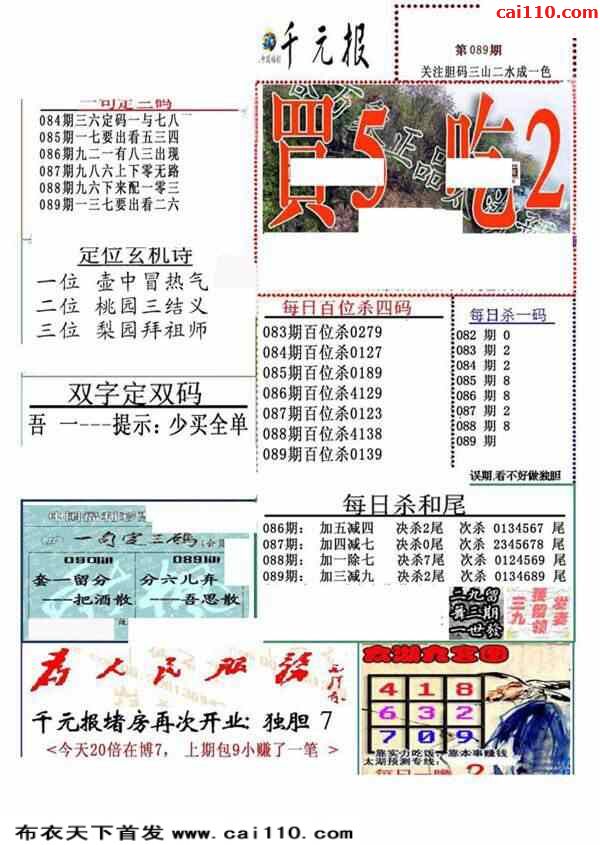 cai110.com
千元报
第089期
关注胆码三山二水成一色
一句定三码
084期三六定码一与七八
085期一七要出看五三四
086期九二一有八三出现
087期九八六上下零无路
088期九六下来配一零三
089期一三七要出看二六
買5 吃2
定位玄机诗
一位 壶中冒热气
二位 桃园三结义
三位 梨园拜祖师
每日百位杀四码
083期百位杀0279
084期百位杀0127
085期百位杀0189
086期百位杀4129
087期百位杀0123
088期百位杀4138
089期百位杀0139
每日杀一码
082 期 0
083 期 2
084 期 2
085 期 8
086 期 8
087 期 2
088 期 8
089 期
误期,看不好做独胆
双字定双码
吾 一---提示:少买全单
每日杀和尾
086期: 加五减四 决杀2尾 次杀 0134567 尾
087期: 加四减七 决杀0尾 次杀 2345678 尾
088期: 加一除七 决杀7尾 次杀 0124569 尾
089期: 加三减九 决杀2尾 次杀 0134689 尾
一句定三码
090期 089期
套一留分 分六儿弃
——把酒散 ——吾思散
为人民服務
千元报堵房再次开业: 独胆 7
<今天20倍在博7, 上期包9小赚了一笔 >
太湖九宫图
4 1 8
6 3 2
7 0 9
靠实力吃饭，靠本事赚钱
太湖预测专线:
布衣天下首发 www.cai110.com